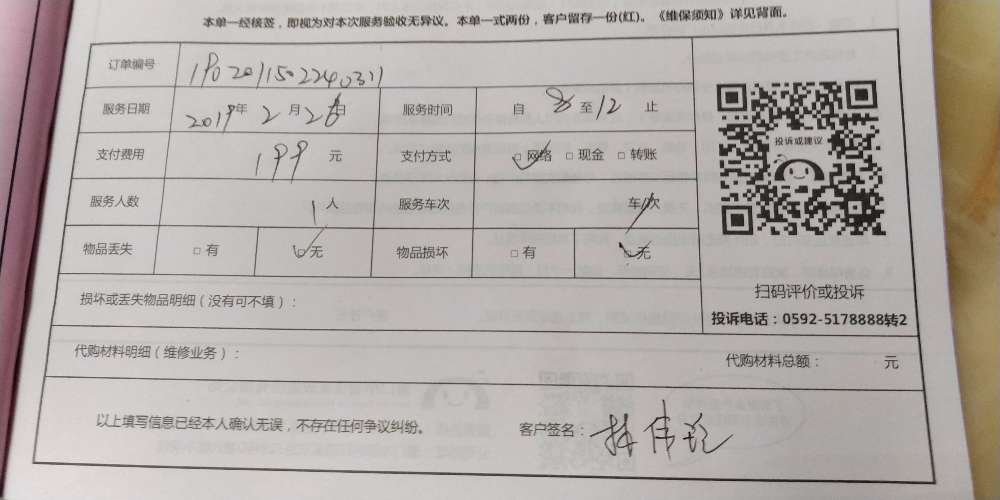 本单一经核签，即视为对本次服务验收无异议。本单一式两份，客户留存一份(红)。《维保须知》详见背面。
订单编号
服务日期 2019年 2月 26日 服务时间 自 8 至 12 止
支付费用 199 元 支付方式 □ 网络 □ 现金 □ 转账
服务人数 1 人 服务车次 车/次
物品丢失 □ 有 □ 无 物品损坏 □ 有 □ 无
投诉或建议
扫码评价或投诉
投诉电话：0592-5178888转2
损坏或丢失物品明细（没有可不填）：
代购材料明细（维修业务）： 代购材料总额： 元
以上填写信息已经本人确认无误，不存在任何争议纠纷。 客户签名：林伟珍